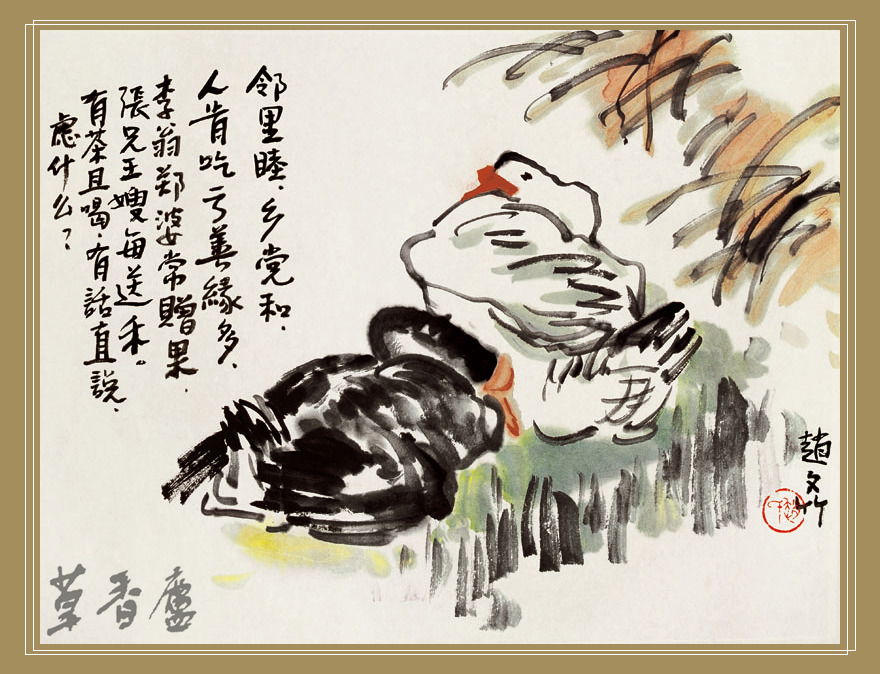 邻里睦，乡党和，
人肯吃亏善緣多，
李翁郑婆常贈果，
張兄王嫂每送禾。
有茶且喝，有話直説，
慮什么？
趙文竹
草香廬